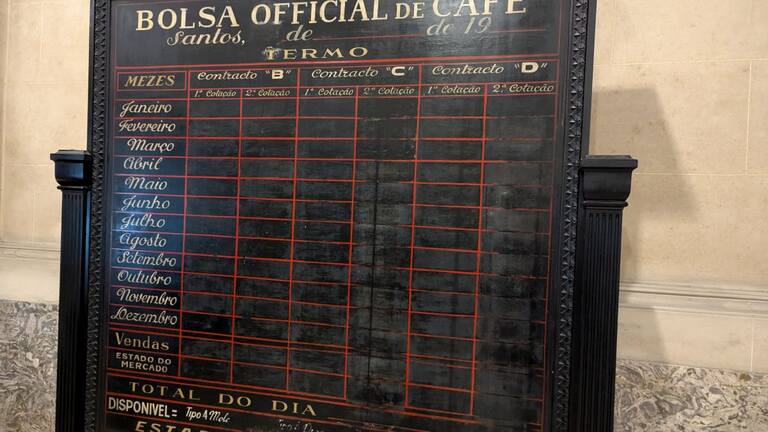 BOLSA OFFICIAL DE CAFÉ
Santos, de de 19
TERMO
MEZES Contracto "B" Contracto "C" Contracto "D"
1.ª Cotação 2.ª Cotação 1.ª Cotação 2.ª Cotação 1.ª Cotação 2.ª Cotação
Janeiro
Fevereiro
Março
Abril
Maio
Junho
Julho
Agosto
Setembro
Outubro
Novembro
Dezembro
Vendas
ESTADO DO
MERCADO
TOTAL DO DIA
DISPONIVEL = Tipo 4 Mole